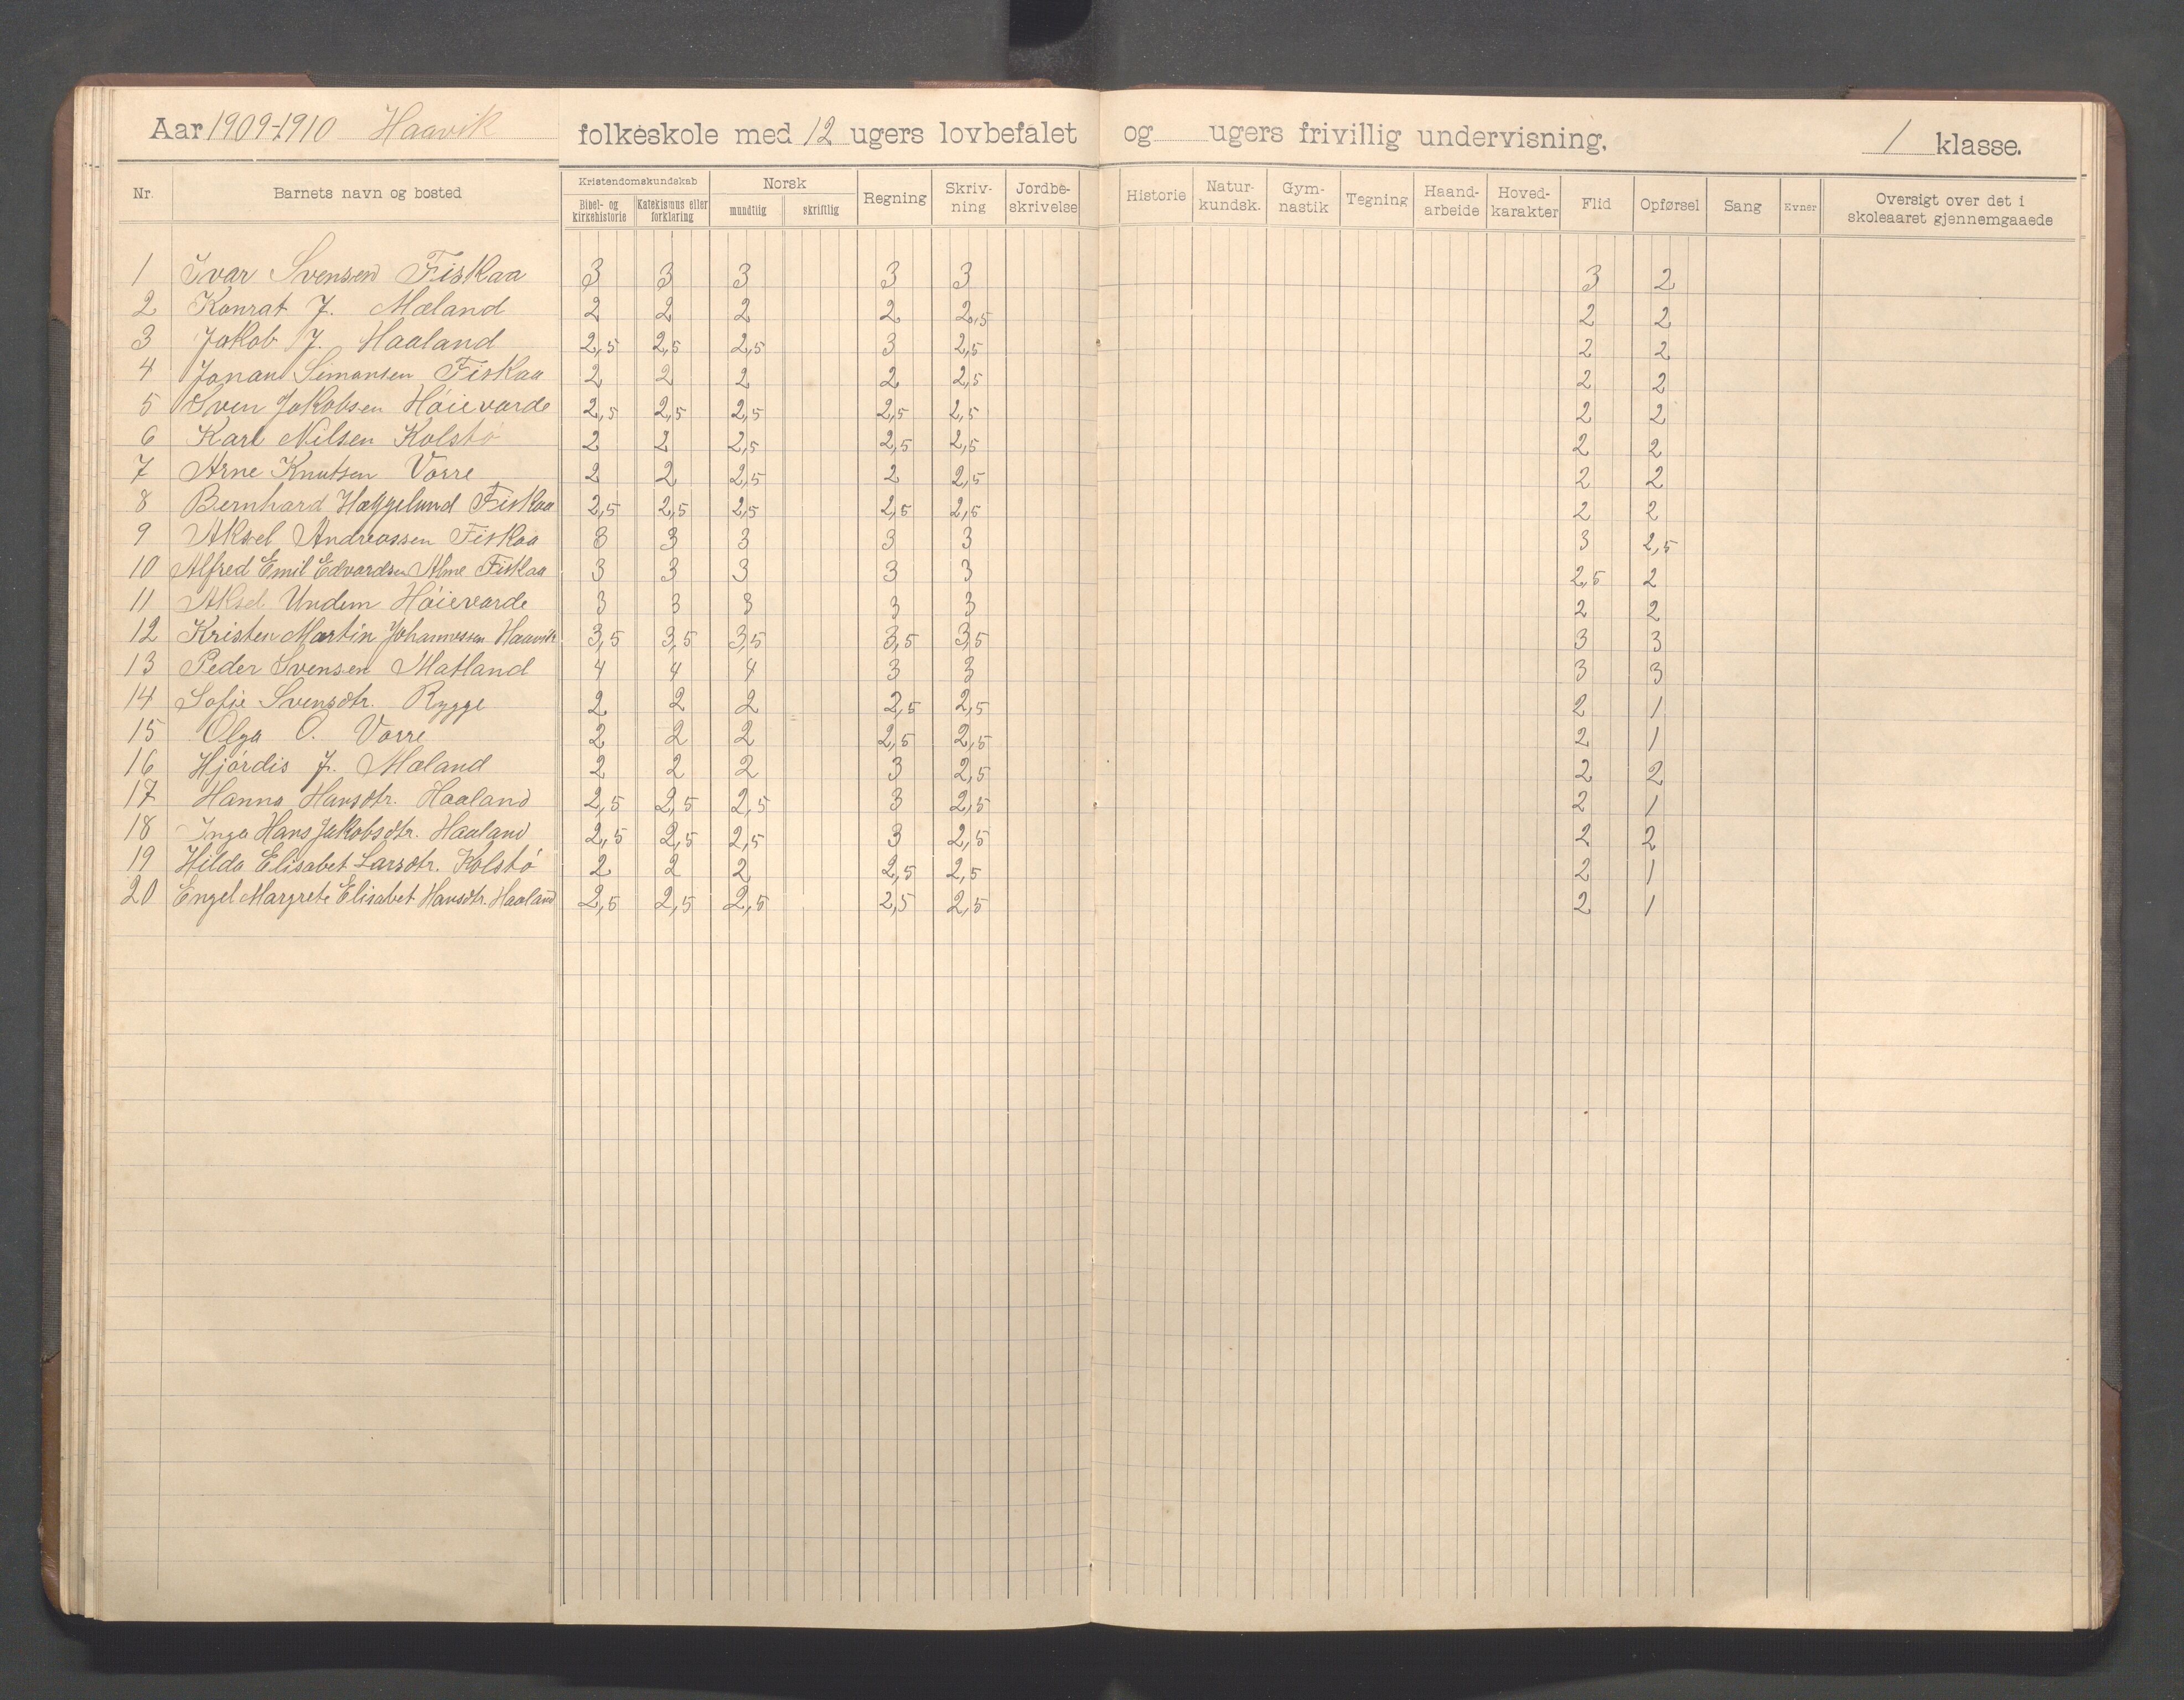 Aar 1909-1910 Haavik folkeskole med 12 ugers lovbefalet og ugers frivillig undervisning. 1 klasse.
Nr. Barnets navn og bosted Kristendomskundskab Bibel- og kirkehistorie Katekismus eller forklaring Norsk mundtlig skriftlig Regning Skriv-ning Jordbe-skrivelse Historie Natur-kundsk. Gym-nastik Tegning Haand-arbeide Hoved-karakter Flid Opførsel Sang Evner Oversigt over det i skoleaaret gjennemgaaede
1 Ivar Svensen Fiskaa 3 3 3 3 3 3 2
2 Konrat J. Mæland 2 2 2 2 2,5 2 2
3 Jakob J. Haaland 2,5 2,5 2,5 3 2,5 2 2
4 Jonan Semonsen Fiskaa 2 2 2 2 2,5 2 2
5 Sven Jakobsen Høievarde 2,5 2,5 2,5 2,5 2,5 2 2
6 Karl Nilsen Kolstø 2 2 2,5 2,5 2,5 2 2
7 Arne Knutsen Vorre 2 2 2,5 2 2,5 2 2
8 Bernhard Hæggelund Fiskaa 2,5 2,5 2,5 2,5 2,5 2 2
9 Aksel Andreassen Fiskaa 3 3 3 3 3 3 2,5
10 Alfred Emil Edvardsen Alme Fiskaa 3 3 3 3 3 2,5 2
11 Aksel Undem Høievarde 3 3 3 3 3 2 2
12 Kristen Martin Johannessen Haavik 3,5 3,5 3,5 3,5 3,5 3 3
13 Peder Svensen Matland 4 4 4 3 3 3 3
14 Sofie Svensdtr. Rygge 2 2 2 2,5 2,5 2 1
15 Olga O. Vorre 2 2 2 2,5 2,5 2 1
16 Hjørdis J. Mæland 2 2 2 3 2,5 2 2
17 Hanna Hansdtr. Haaland 2,5 2,5 2,5 3 2,5 2 1
18 Inga Hans Jakobsdtr. Haaland 2,5 2,5 2,5 3 2,5 2 2
19 Hilda Elisabet Larsdtr. Kolstø 2 2 2 2,5 2,5 2 1
20 Engel Margrete Elisabet Hansdtr. Haaland 2,5 2,5 2,5 2,5 2,5 2 1